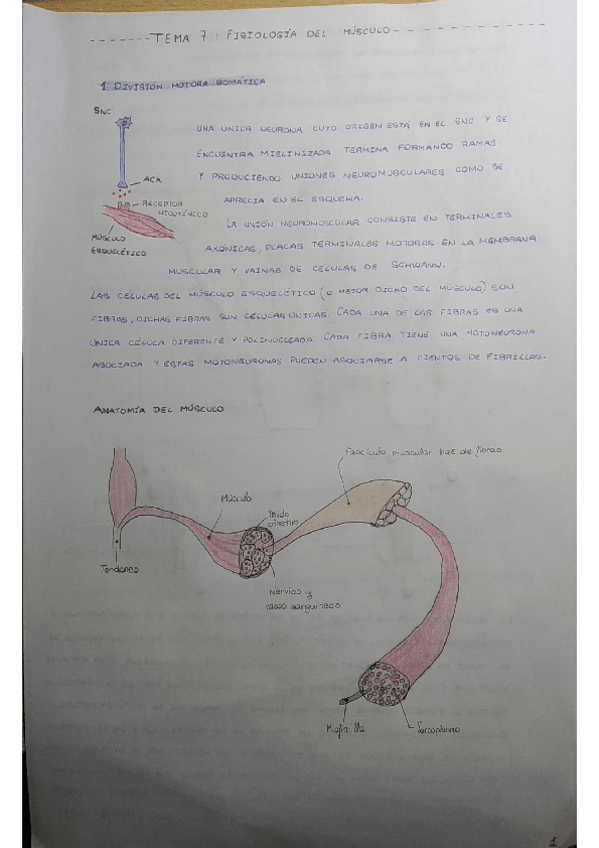 TEMA 7: FISIOLOGÍA DEL MÚSCULO
1 DIVISIÓN MOTORA SOMÁTICA
SNC
ACh
RECEPTOR
NICOTÍNICO
MÚSCULO
ESQUELÉTICO
UNA ÚNICA NEURONA CUYO ORIGEN ESTÁ EN EL SNC Y SE
ENCUENTRA MIELINIZADA TERMINA FORMANDO RAMAS
Y PRODUCIENDO UNIONES NEUROMUSCULARES COMO SE
APRECIA EN EL ESQUEMA.
LA UNIÓN NEUROMUSCULAR CONSISTE EN TERMINALES
AXÓNICAS, PLACAS TERMINALES MOTORAS EN LA MEMBRANA
MUSCULAR Y VAINAS DE CÉLULAS DE SCHWANN.
LAS CÉLULAS DEL MÚSCULO ESQUELÉTICO (O MEJOR DICHO DEL MÚSCULO) SON
FIBRAS, DICHAS FIBRAS SON CÉLULAS ÚNICAS. CADA UNA DE LAS FIBRAS ES UNA
ÚNICA CÉLULA DIFERENTE Y POLINUCLEADA. CADA FIBRA TIENE UNA MOTONEURONA
ASOCIADA Y ESTAS MOTONEURONAS PUEDEN ASOCIARSE A CIENTOS DE FIBRILLAS.
ANATOMÍA DEL MÚSCULO
Fascículo muscular haz de fibras
Músculo
Tejido
conectivo
Tendones
Nervios y
vasos sanguíneos
Miofibrilla
Sarcoplasma
1